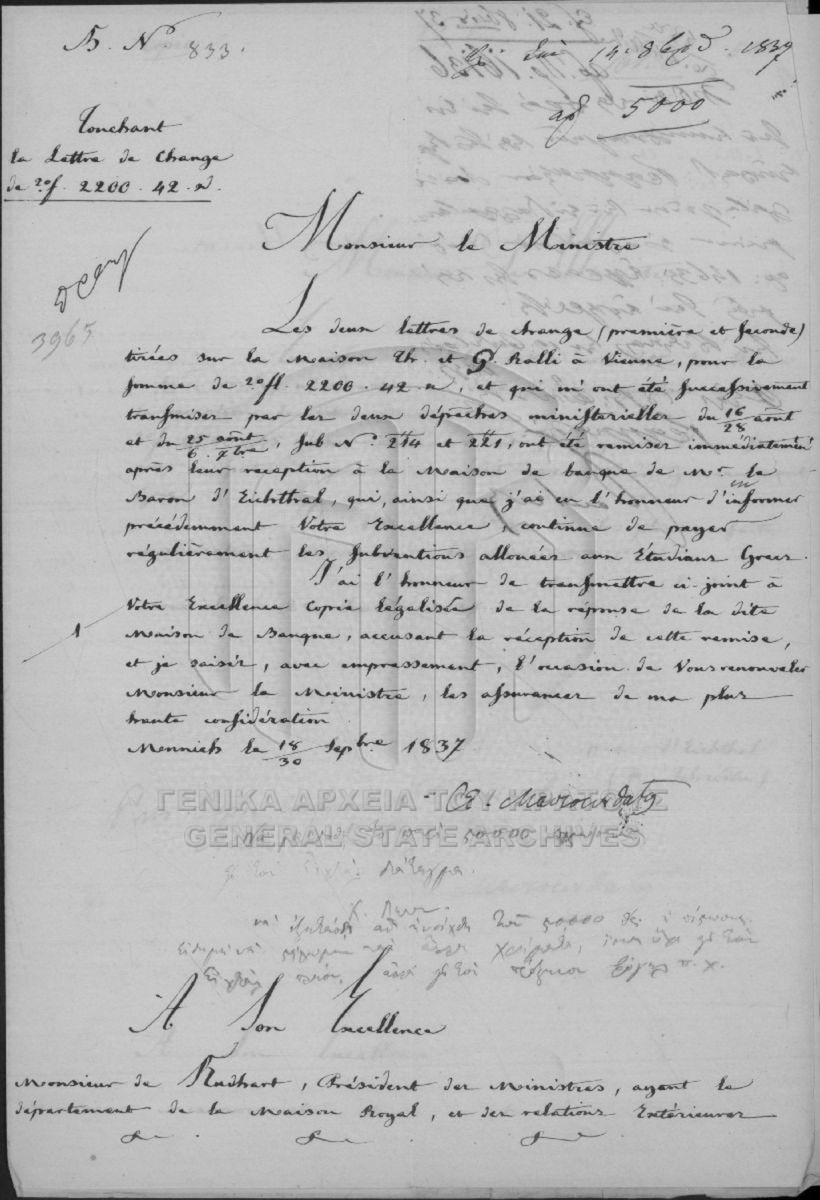 N. 833.
1837
5000
Touchant
la Lettre de Change
de 20f. 2200. 42. x.
3965
Monsieur le Ministre
Les deux lettres de change (première et seconde)
tirées sur la Maison Th. et G. Ralli à Vienne, pour la
somme de 20fl. 2200. 42. x, et qui m'ont été successivement
transmises par les deux dépêches ministerielles du 16/28 août
et du 25 août/6. 7bre, sub No. 214 et 221, ont été remises immédiatement
après leur reception à la Maison de banque de Mr. le
Baron d'Eichthal, qui, ainsi que j'ai eu l'honneur d'informer
précédemment Votre Excellence, continue de payer
régulièrement les subventions allouées aux Étudians Grecs.
J'ai l'honneur de transmettre ci-joint à
Votre Excellence Copie légalisée de la réponse de la dite
1 Maison de Banque, accusant la réception de cette remise,
et je saisis, avec empressement, l'occasion de Vous renouveler
Monsieur le Ministre, les assurances de ma plus
haute considération
Munnich le 18/30 Septbre 1837
ΓΕΝΙΚΑ ΑΡΧΕΙΑ ΤΟΥ ΚΡΑΤΟΥΣ
GENERAL STATE ARCHIVES
50000
διάταγμα.
A Son Excellence
Monsieur de Rudhart, Président des Ministres, ayant le
département de la Maison Royal, et des relations Extérieures